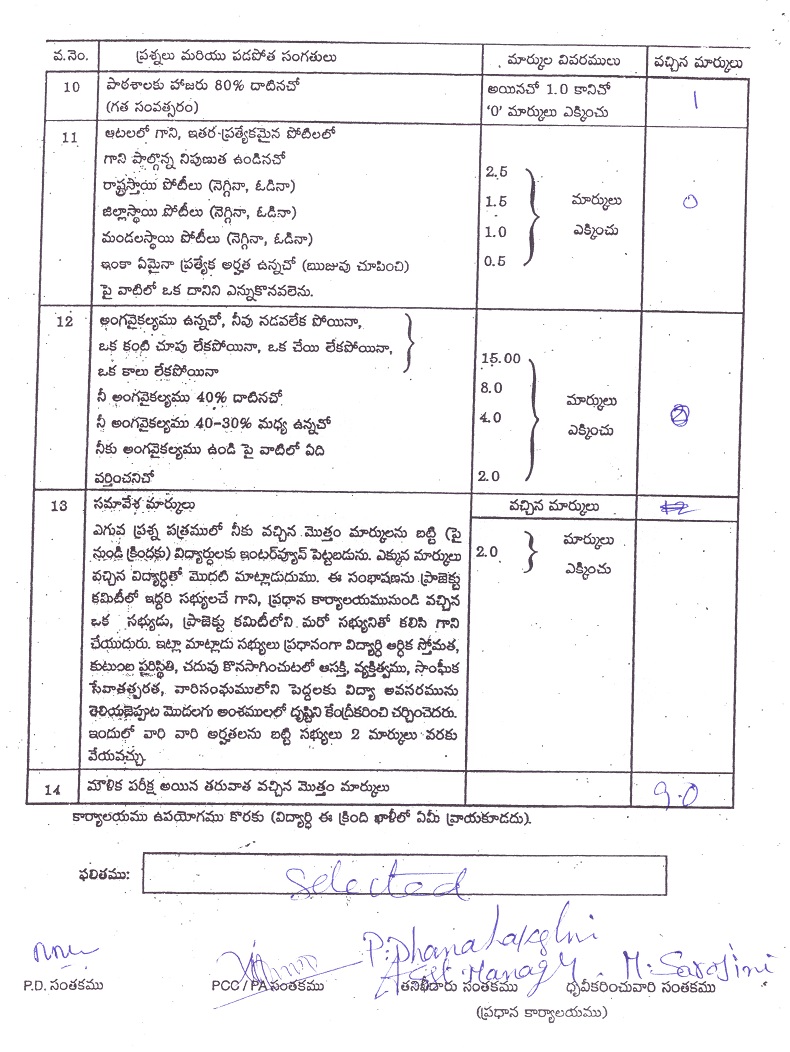 వ.నెం. ప్రశ్నలు మరియు పడపోత సంగతులు మార్కుల వివరములు వచ్చిన మార్కులు
10 పాఠశాలకు హాజరు 80% దాటినచో అయినచో 1.0 కానిచో 1
(గత సంవత్సరం) '0' మార్కులు ఎక్కించు
11 ఆటలలో గాని, ఇతర ప్రత్యేకమైన పోటిలలో
గాని పాల్గొన్న నిపుణుత ఉండినచో
రాష్ట్రస్తాయి పోటీలు (నెగ్గినా, ఓడినా) 2.5
జిల్లాస్థాయి పోటీలు (నెగ్గినా, ఓడినా) 1.5 మార్కులు 0
మండలస్థాయి పోటీలు (నెగ్గినా, ఓడినా) 1.0 ఎక్కించు
ఇంకా ఏమైనా ప్రత్యేక అర్హత ఉన్నచో (ఋజువు చూపించి) 0.5
పై వాటిలో ఒక దానిని ఎన్నుకొనవలెను.
12 అంగవైకల్యము ఉన్నచో, నీవు నడవలేక పోయినా,
ఒక కంటి చూపు లేకపోయినా, ఒక చేయి లేకపోయినా,
ఒక కాలు లేకపోయినా 15.00
నీ అంగవైకల్యము 40% దాటినచో 8.0 మార్కులు
నీ అంగవైకల్యము 40-30% మధ్య ఉన్నచో 4.0 ఎక్కించు
నీకు అంగవైకల్యము ఉండి పై వాటిలో ఏది
వర్తించనిచో 2.0
13 సమావేశ మార్కులు వచ్చిన మార్కులు
ఎగువ ప్రశ్న పత్రములో నీకు వచ్చిన మొత్తం మార్కులను బట్టి (పై 2.0 మార్కులు
నుండి క్రిందకు) విద్యార్ధులకు ఇంటర్వ్యూవ్ పెట్టబడును. ఎక్కువ మార్కులు ఎక్కించు
వచ్చిన విద్యార్ధితో మొదటి మాట్లాడుదుము. ఈ సంభాషణను ప్రాజెక్టు
కమిటీలో ఇద్దరి సభ్యులచే గాని, ప్రధాన కార్యాలయమునుండి వచ్చిన
ఒక సభ్యుడు, ప్రాజెక్టు కమిటీలోని మరో సభ్యునితో కలిసి గాని
చేయుదురు. ఇట్లా మాట్లాడు సభ్యులు ప్రధానంగా విద్యార్ధి ఆర్ధిక స్తోమత,
కుటుంబ పరిస్థితి, చదువు కొనసాగించుటలో ఆసక్తి, వ్యక్తిత్వము, సాంఘీక
సేవాతత్పరత, వారిసంఘములోని పెద్దలకు విద్యా అవసరమును
తెలియజెప్పుట మొదలగు అంశములలో దృష్టిని కేంద్రీకరించి చర్చించెదరు.
ఇందులో వారి వారి అర్హతలను బట్టి సభ్యులు 2 మార్కులు వరకు
వేయవచ్చు.
14 మౌళిక పరీక్ష అయిన తరువాత వచ్చిన మొత్తం మార్కులు 9.0
కార్యాలయము ఉపయోగము కొరకు (విద్యార్ధి ఈ క్రింది ఖాళీలో ఏమీ వ్రాయకూడదు).
ఫలితము: Selected
P. Dhanalakshmi
M. Sarojini
P.D. సంతకము PCC / PA సంతకము తనిఖీదారు సంతకము ధృవీకరించువారి సంతకము
(ప్రధాన కార్యాలయము)